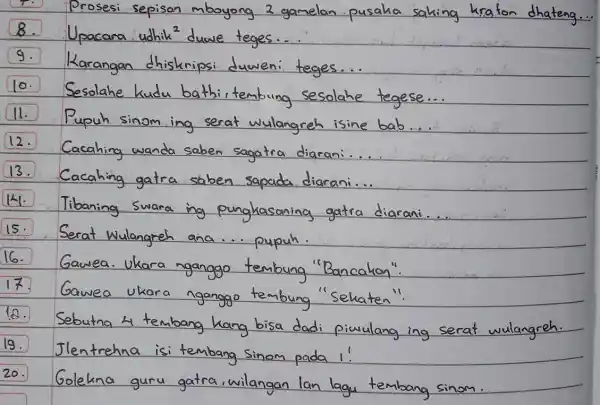 Prosesi sepisan mboyong 2 gamelan pusaka saking kraton dhateng...
8. Upacara udhik² duwe teges....
9. Karangan dhiskripsi duweni teges...
10. Sesolahe kudu bathi, tembung sesolahe tegese...
11. Pupuh sinom ing serat wulangreh isine bab....
12. Cacahing wanda saben sagatra diarani....
13. Cacahing gatra saben sapada diarani...
14. Tibaning swara ing pungkasaning gatra diarani....
15. Serat Wulangreh ana ... pupuh.
16. Gawea. Ukara nganggo tembung "Bancakan".
17. Gawea Ukara nganggo tembung "Sekaten".
18. Sebutna 4 tembang kang bisa dadi piwulang ing serat wulangreh.
19. Jlentrehna isi tembang Sinom pada 1!
20. Golekna guru gatra, wilangan lan lagu tembang sinom.